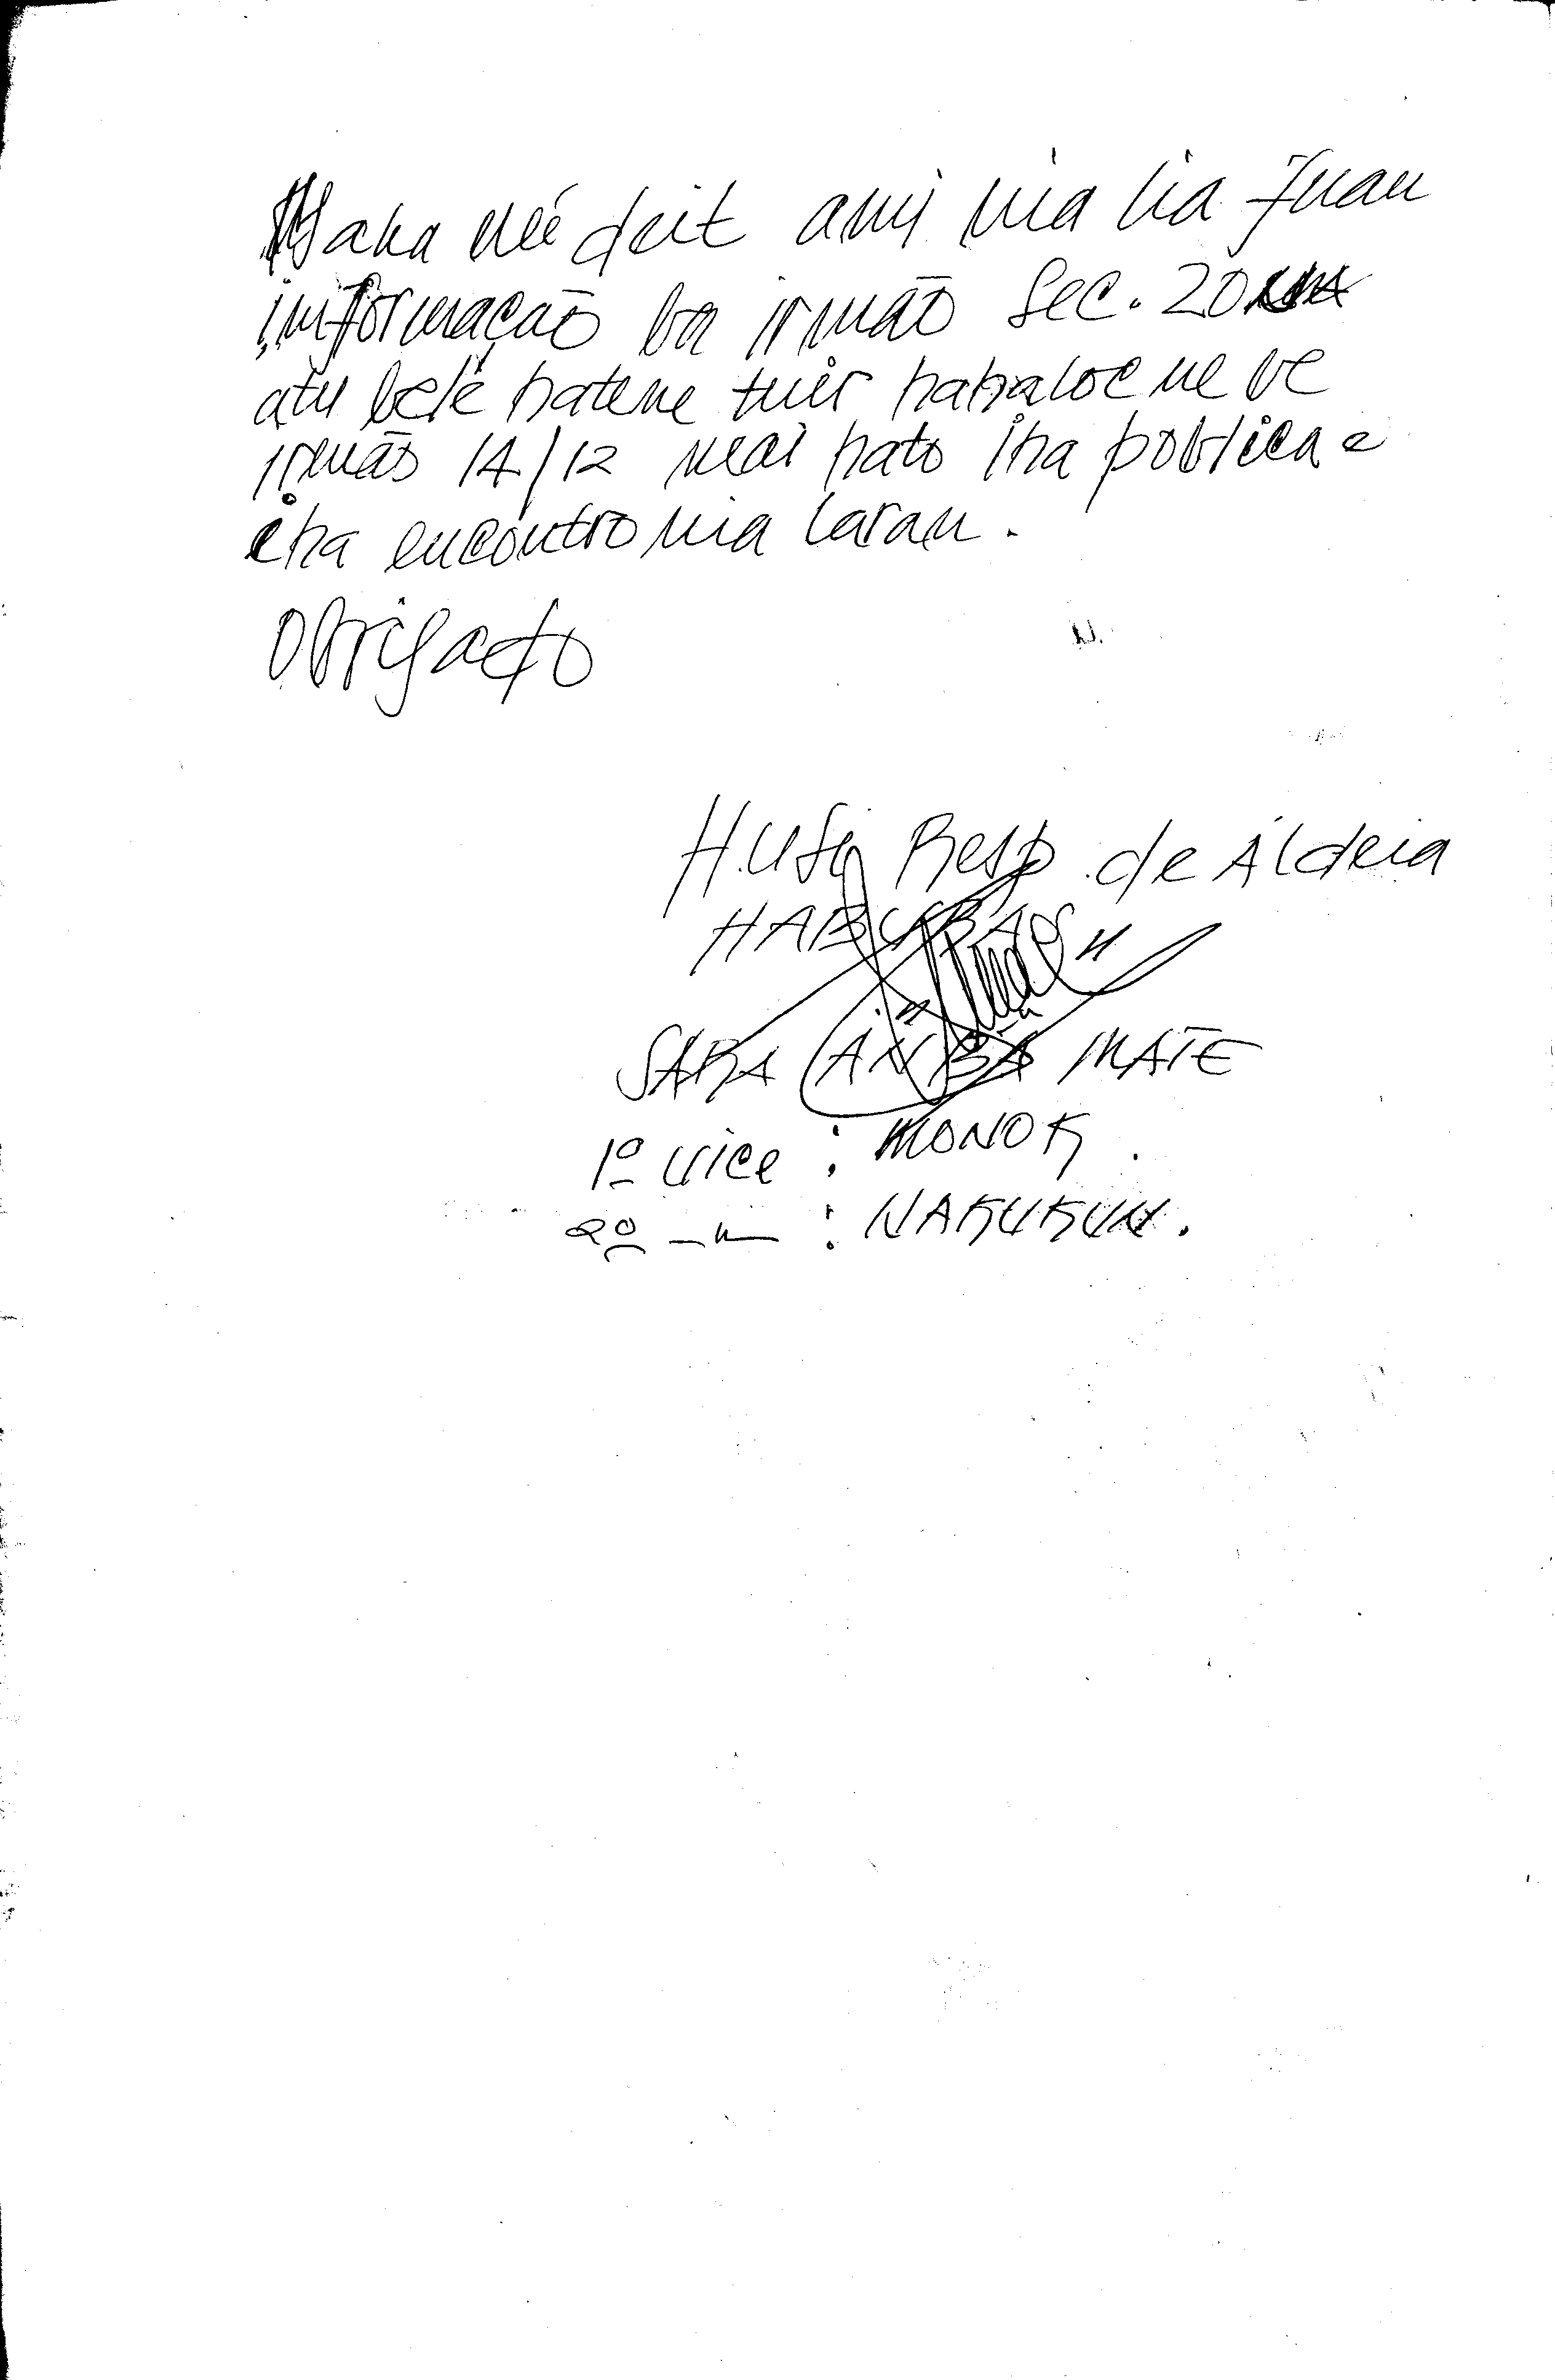 Maka né'e deit ami nia lia fuan
informação ba irmão Sec. 20
atu bele hatene tuir hahaloc ne be
irmão 14/12 mai hato iha poblica e
iha encontro nia laran.
Obrigado
Husi Resp. de Aldeia
HABURAS
SARA ANBA MATE
1º Vice : MONOK.
2º —"— : NAKUKUN.